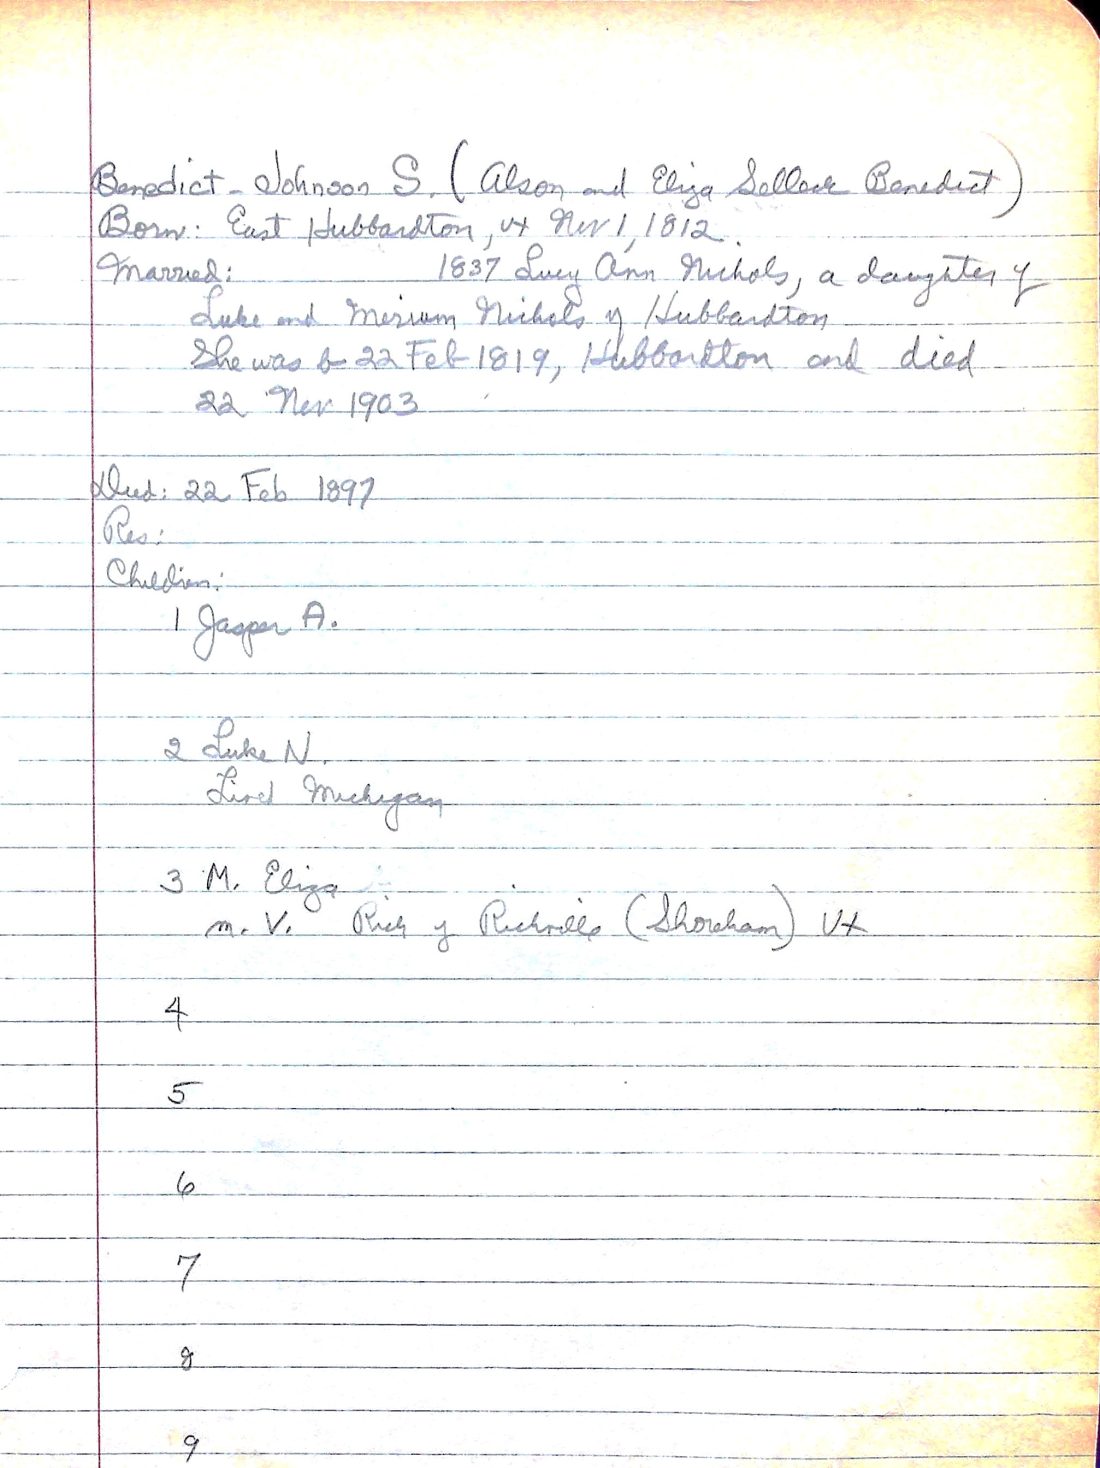 Benedict - Johnson S. (Alson and Eliza Selleck Benedict)
Born: East Hubbardton, Vt Nov 1, 1812.
Married: 1837 Lucy Ann Nichols, a daughter of
Luke and Merium Nichols of Hubbardton
She was b 22 Feb 1819, Hubbardton and died
22 Nov 1903
Died: 22 Feb 1897
Res:
Children:
1 Jasper A.
2 Luke N.
Lived Michigan
3 M. Eliza
m. V. Rich of Richville (Shoreham) Vt
4
5
6
7
8
9